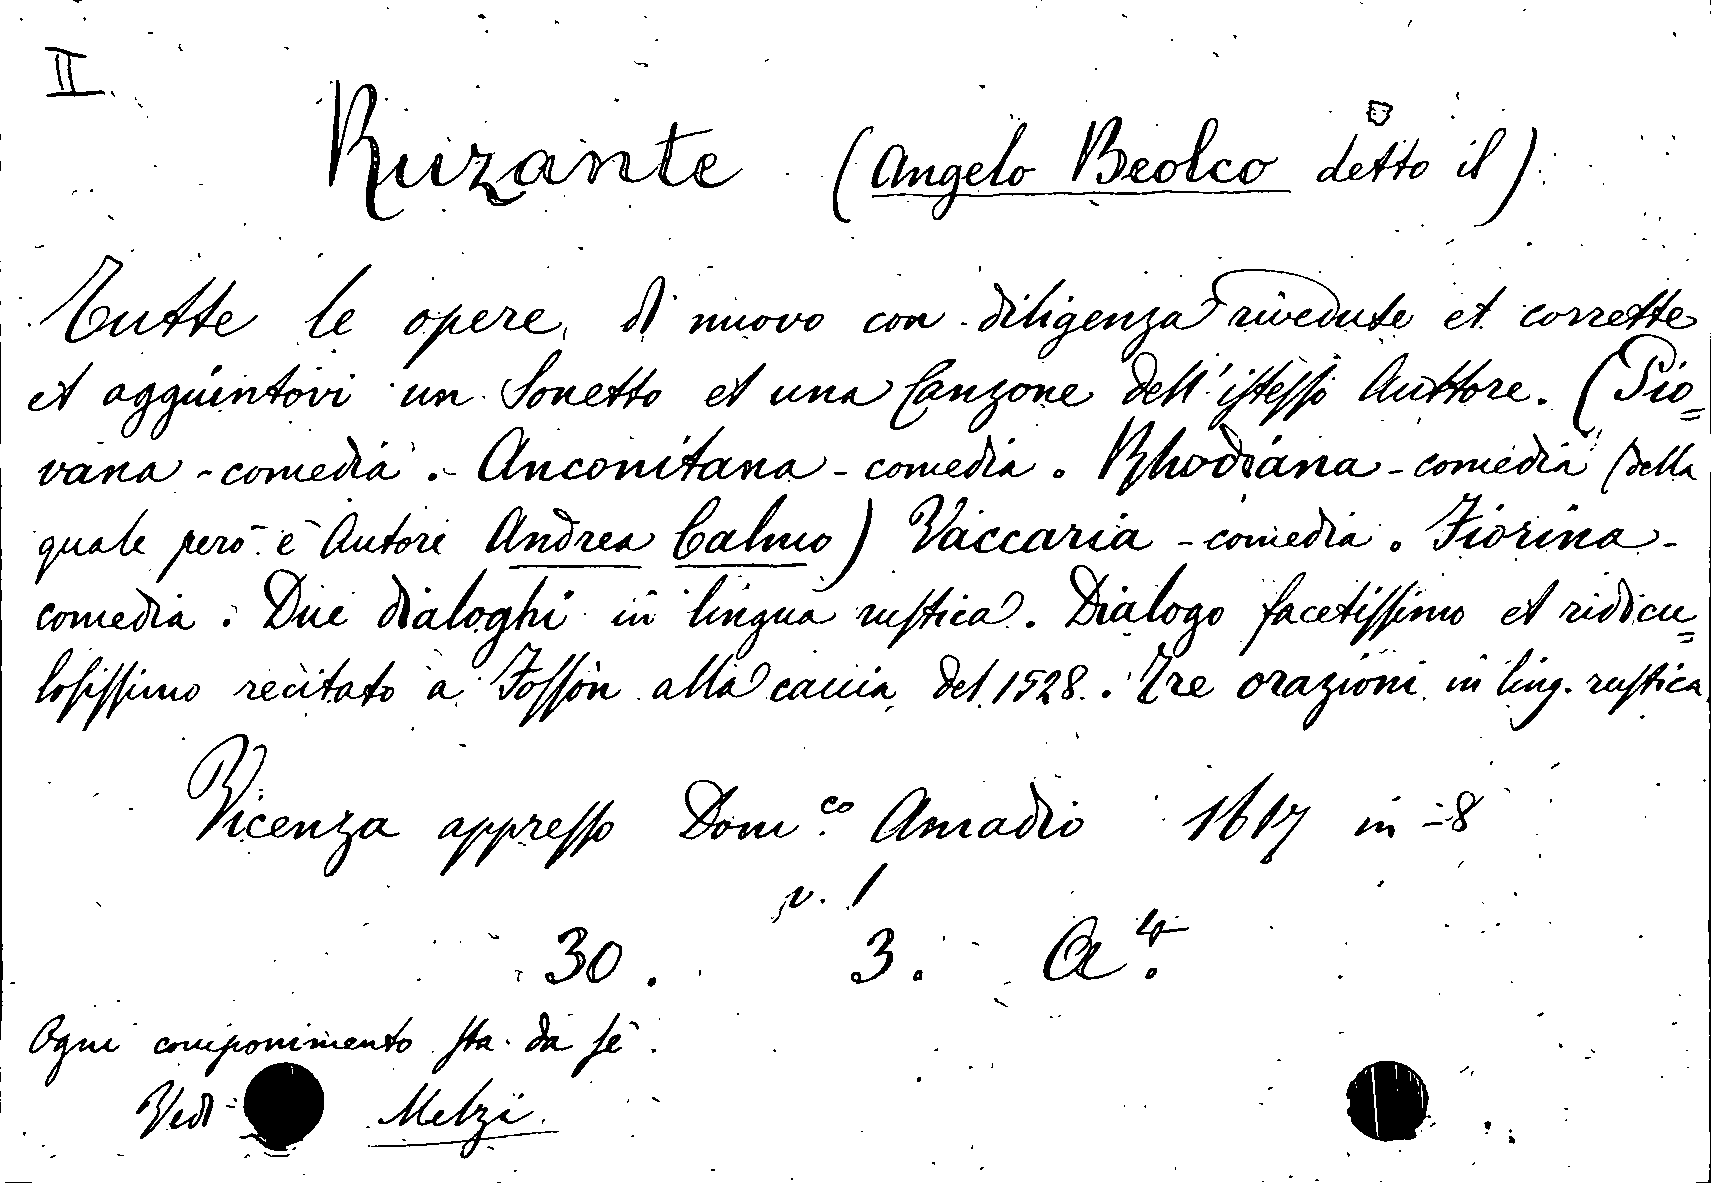 II
Ruzante (Angelo Beolco detto il)
Tutte le opere, di nuovo con diligenza rivedute et corrette
et aggiuntovi un Sonetto et una Canzone dell'istesso Auttore. (Pio=
vana - comedia. - Anconitana - comedia. Rhodiana - comedia (della
quale però è Autore Andrea Calmo) Vaccaria - comedia. Fiorina -
comedia. Due dialoghi in lingua rustica. Dialogo facetissimo et ridicu=
losissimo recitato a Fossòn alla caccia del 1528. Tre orazioni in ling. rustica.
Vicenza appresso Dom.co Amadio 1617 in-8
v. 1
30. 3. A4.
Ogni componimento sta da sè.
Vedi Melzi.